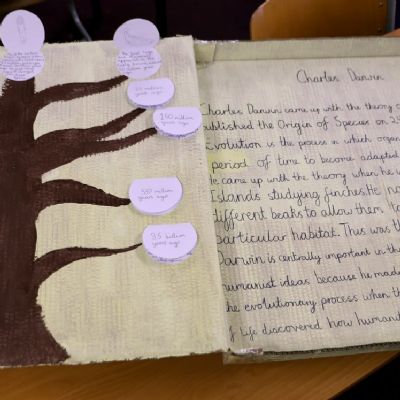 65 million
years ago
250 million
years ago
550 million
years ago
3.5 billion
years ago
Charles Darwin
Charles Darwin came up with the theory o
published the Origin of Species on 24
Evolution is the process in which organ
period of time to become adapted
He came up with the theory when he w
Islands studying finches. He no
different beaks to allow them to
particular habitat. This was th
Darwin is centrally important in th
humanist ideas because he made
the evolutionary process when th
of life discovered how humanit